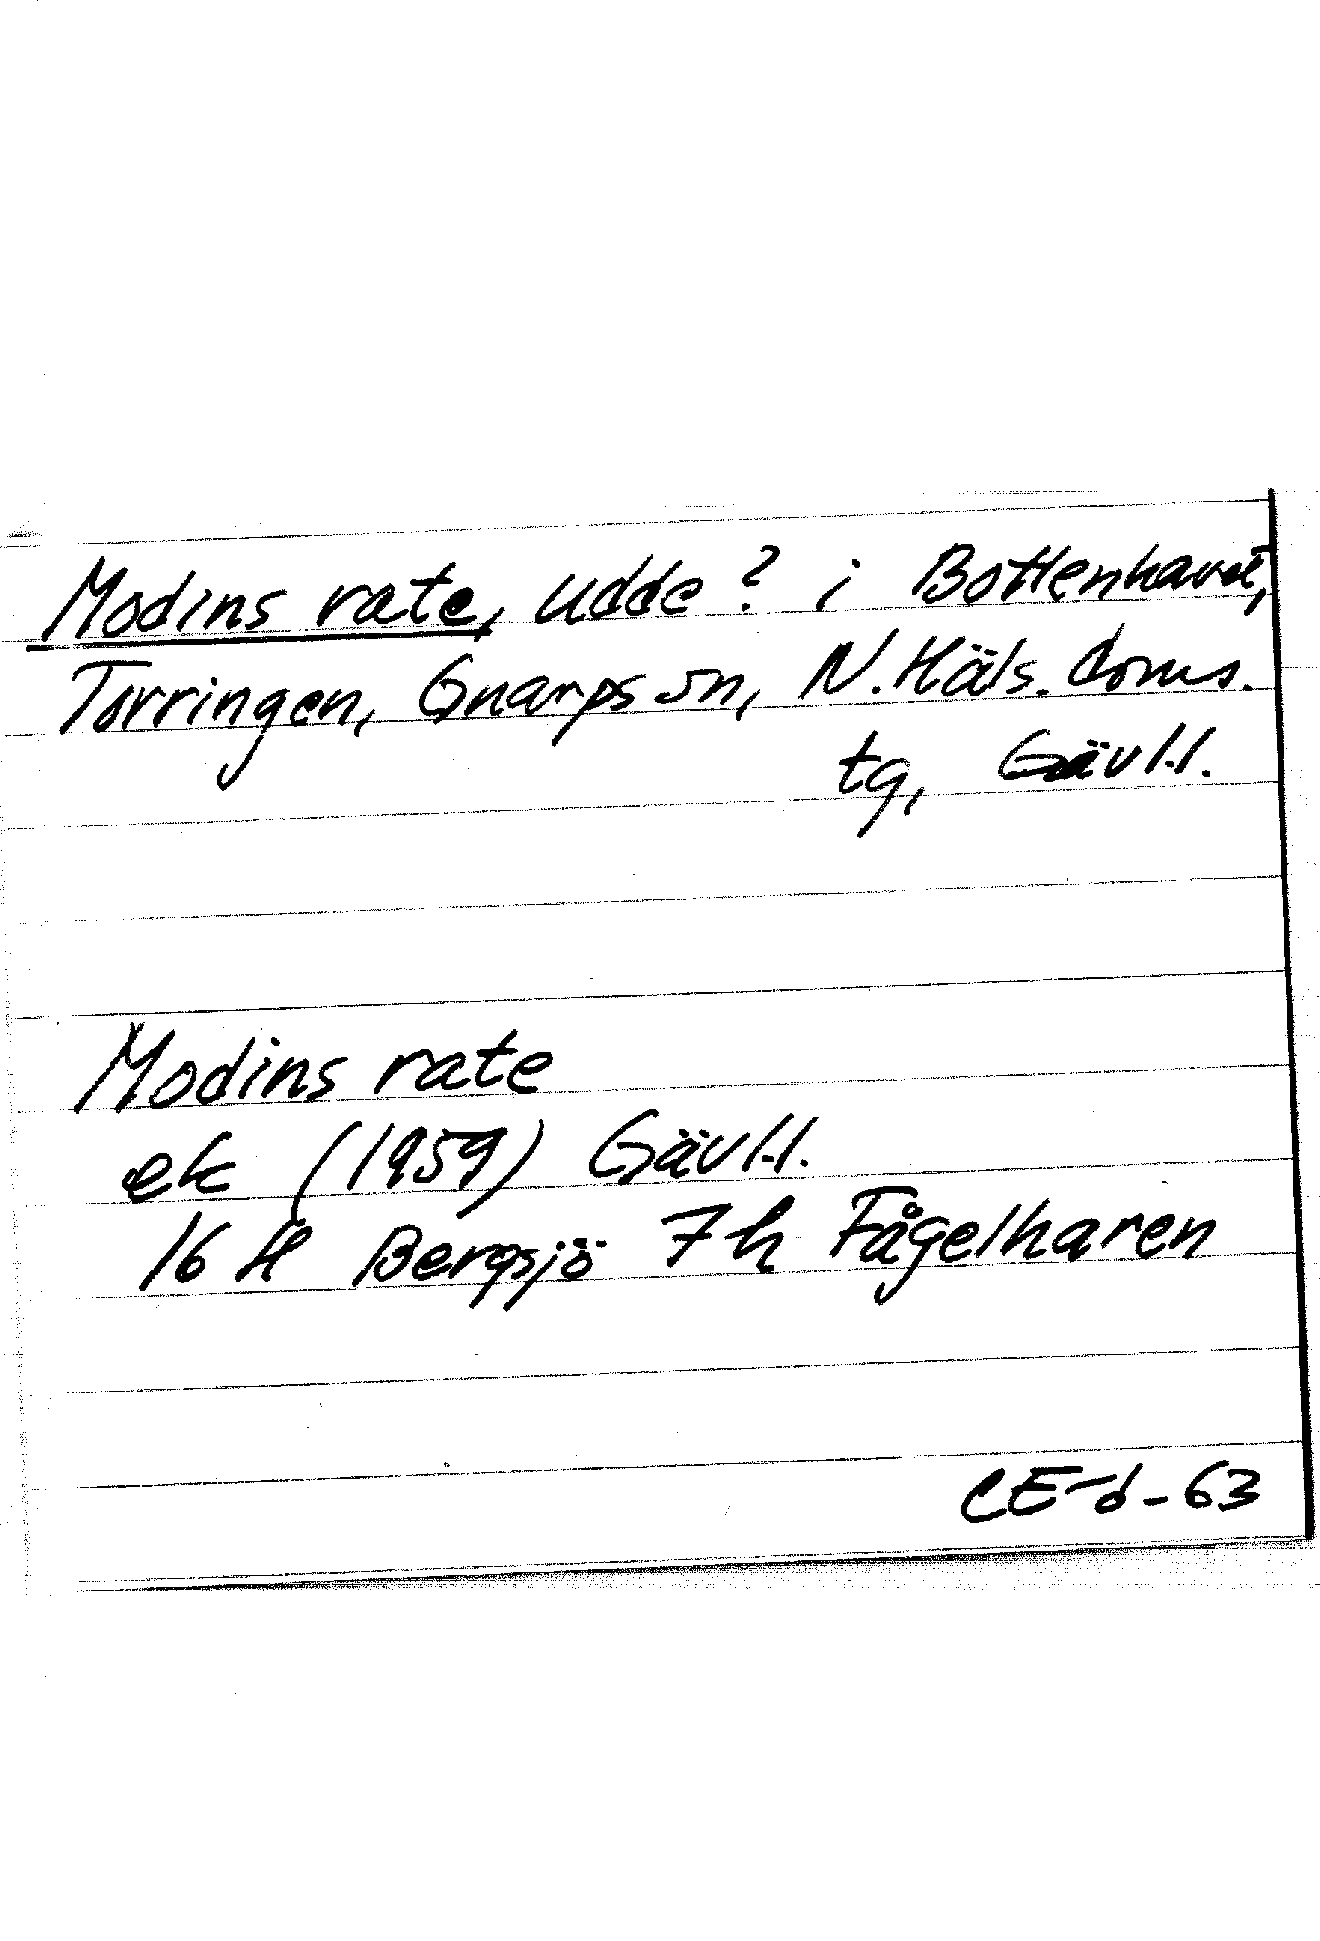 Modins rate, udde? i Bottenhavet,
Torringen, Gnarps sn, N. Häls. doms.
tg, Gävl.l.
Modins rate
ek (1959) Gävl.l.
16 H Bergsjö 7h Fågelharen
CE-d-63